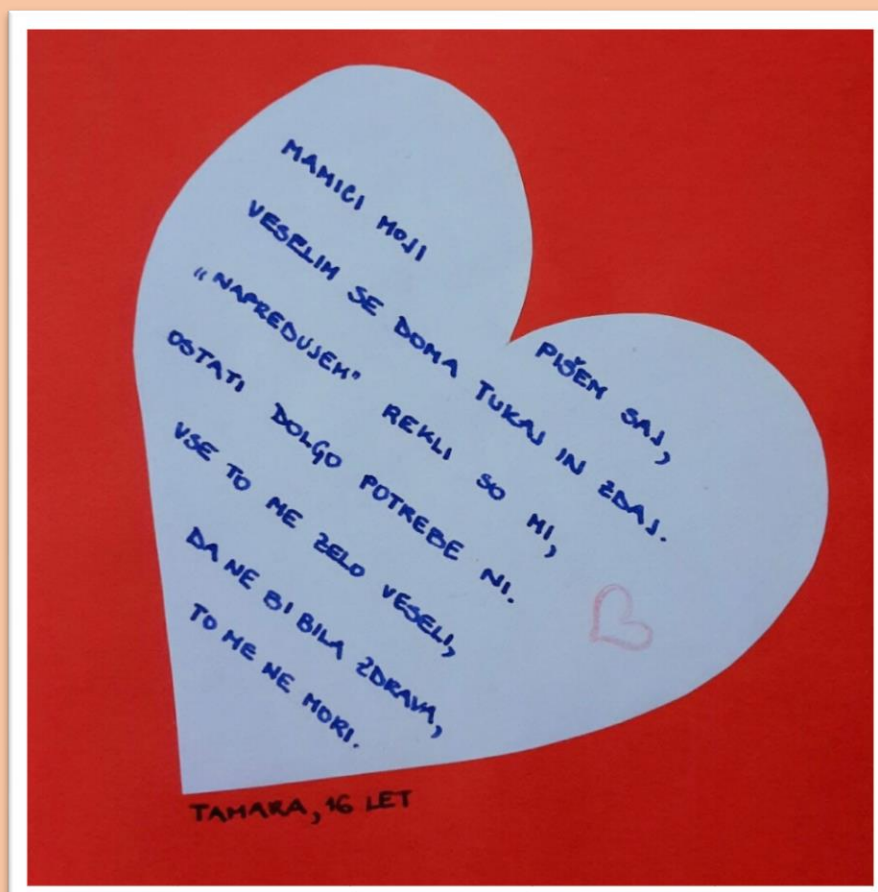 MAMICI MOJI PIŠEM SAJ,
VESELIM SE DOMA TUKAJ IN ZDAJ.
"NAPREDUJEM" REKLI SO MI,
OSTATI DOLGO POTREBE NI.
VSE TO ME ZELO VESELI,
DA NE BI BILA ZDRAVA,
TO ME NE MORI.
TAMARA, 16 LET